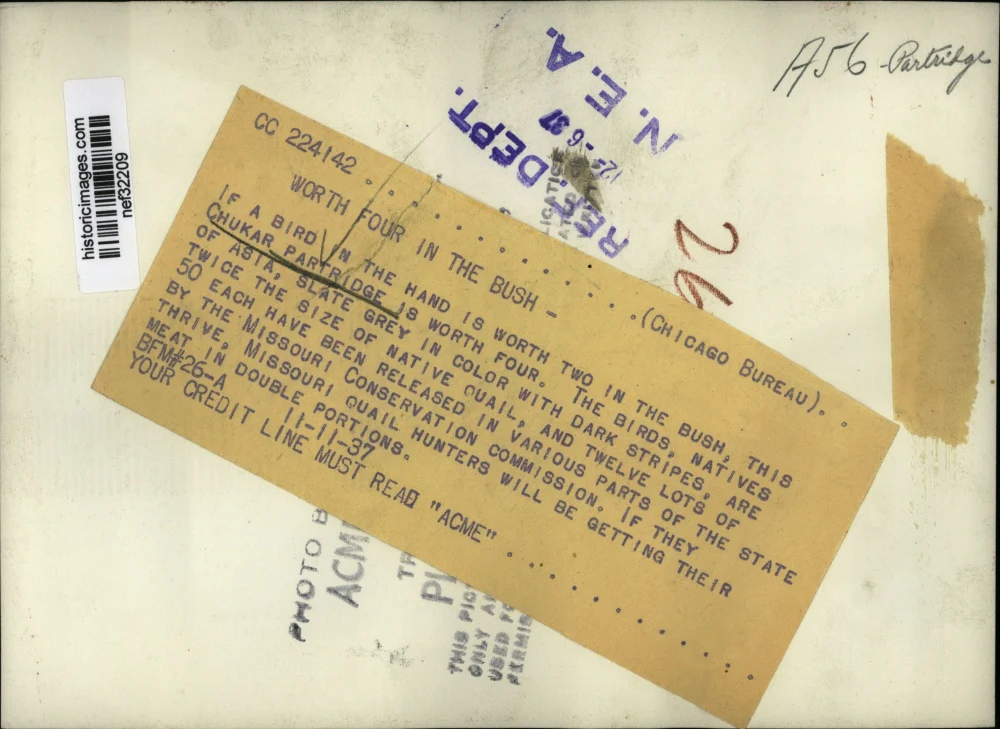 A56-Partridge
historicimages.com
nef32209
N. E. A.
REF. DEPT.
26
CC 224142 . . . . . . . . . . . . . . . (CHICAGO BUREAU).
WORTH FOUR IN THE BUSH -
IF A BIRD IN THE HAND IS WORTH TWO IN THE BUSH, THIS
CHUKAR PARTRIDGE IS WORTH FOUR. THE BIRDS, NATIVES
OF ASIA, SLATE GREY IN COLOR WITH DARK STRIPES, ARE
TWICE THE SIZE OF NATIVE QUAIL, AND TWELVE LOTS OF
50 EACH HAVE BEEN RELEASED IN VARIOUS PARTS OF THE STATE
BY THE MISSOURI CONSERVATION COMMISSION. IF THEY
THRIVE, MISSOURI QUAIL HUNTERS WILL BE GETTING THEIR
MEAT IN DOUBLE PORTIONS.
BFM#26-A 11-11-37
YOUR CREDIT LINE MUST READ "ACME" . . . . . . . . . . . . .
PHOTO B
ACM
THIS PIC
ONLY A
USED FO
PERMIS